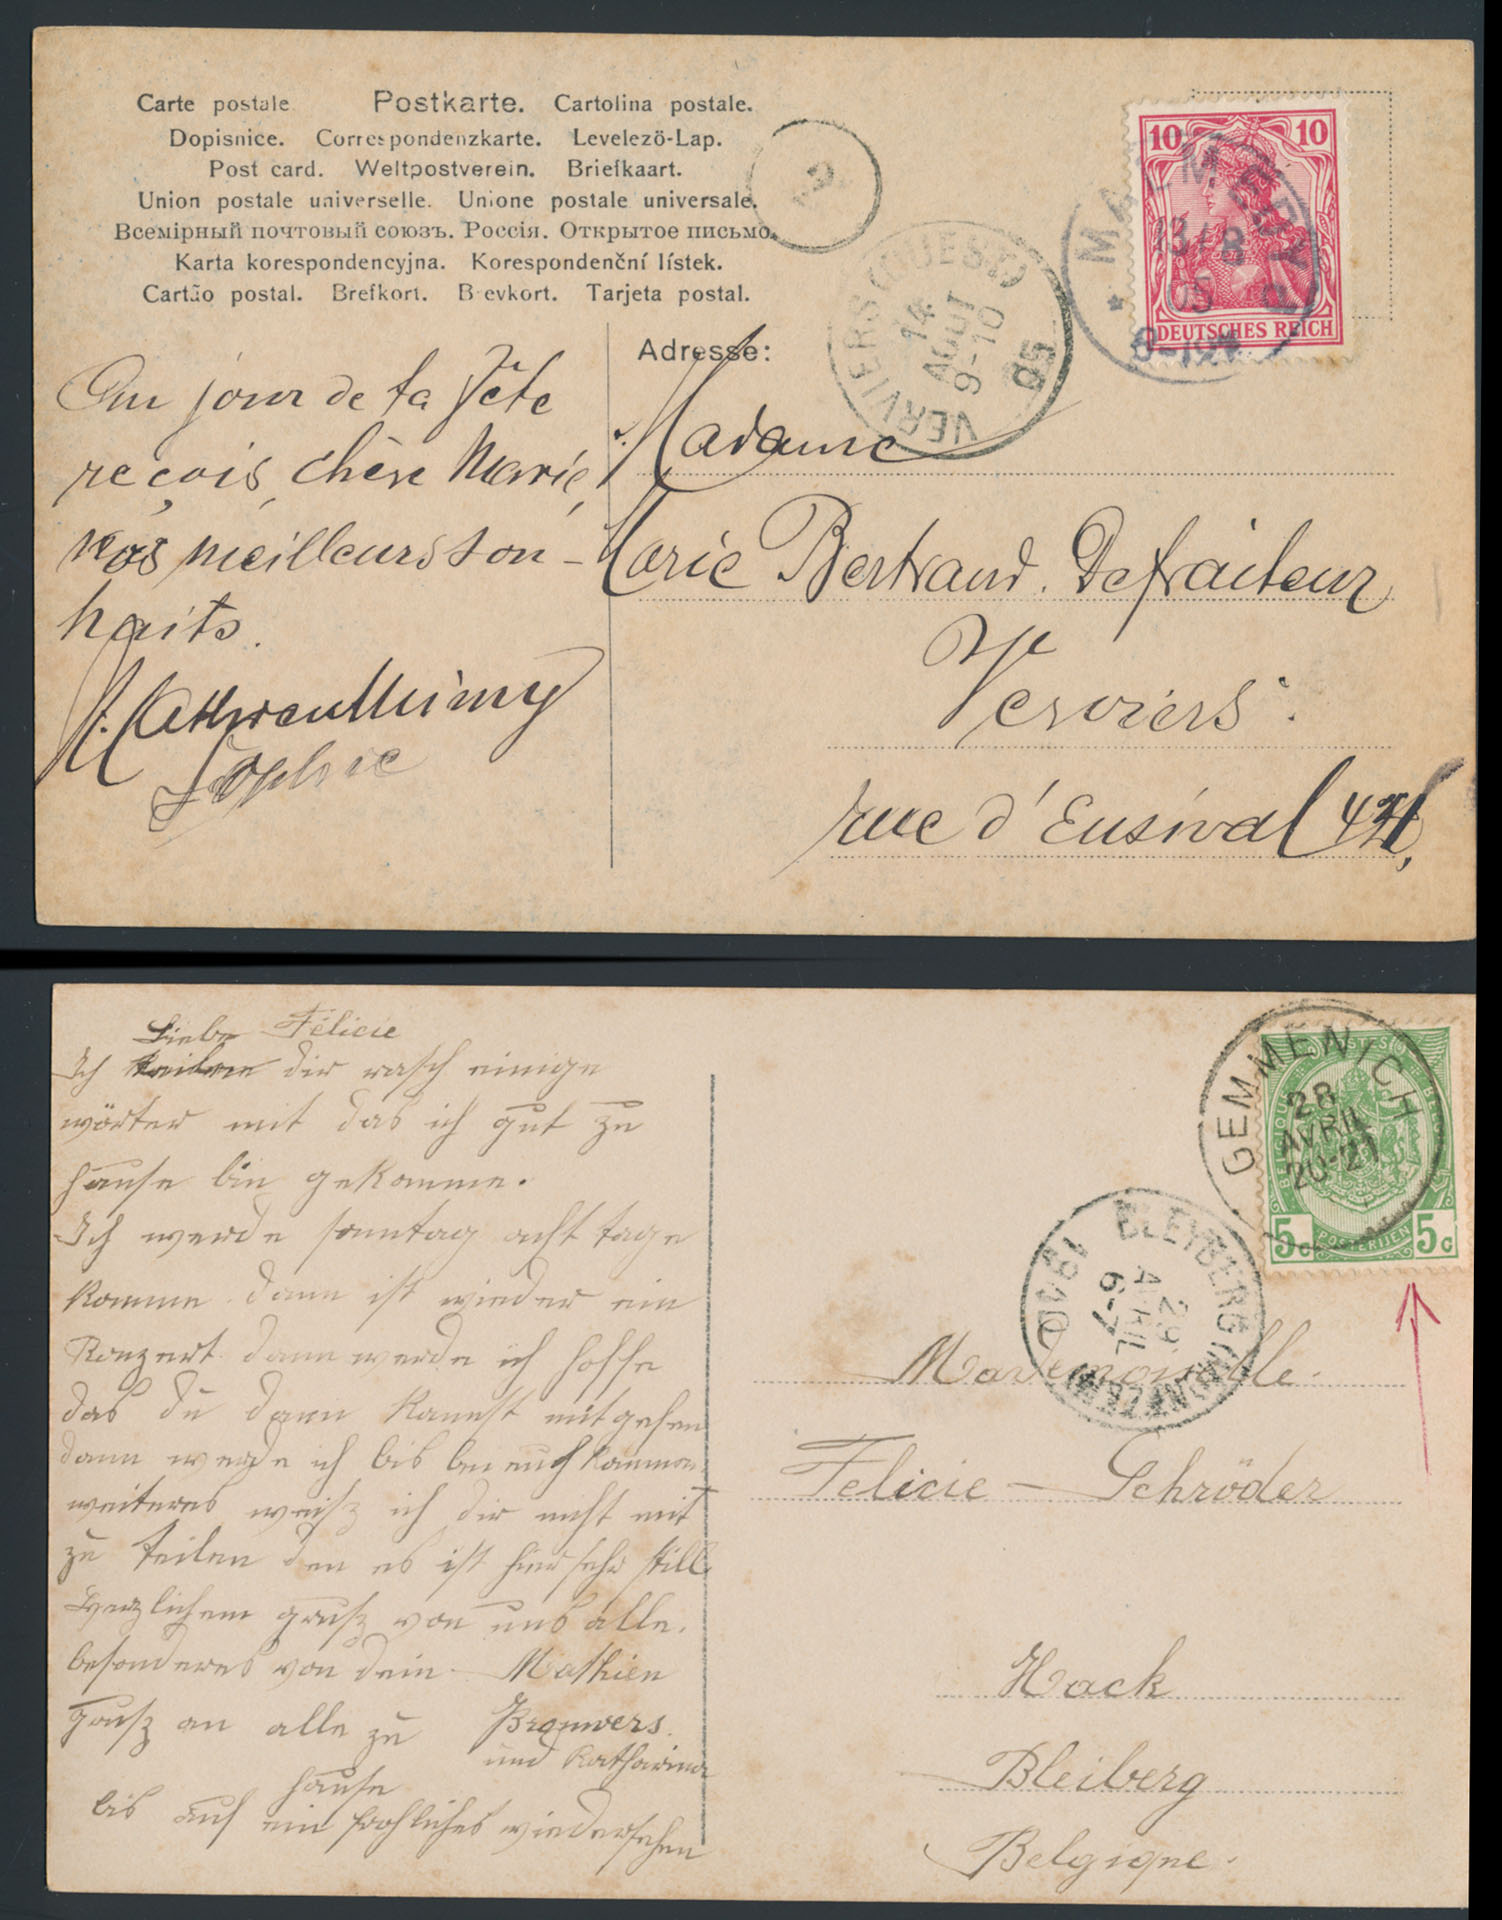 Carte postale Postkarte. Cartolina postale.
Dopisnice. Correspondenzkarte. Levelezö-Lap.
Post card. Weltpostverein. Briefkaart.
Union postale universelle. Unione postale universale.
Всемірный почтовый союзъ. Россія. Открытое письмо.
Karta korespondencyjna. Korespondenční lístek.
Cartão postal. Brefkort. Brevkort. Tarjeta postal.
2
VERVIERS (OUEST)
14
AOUT
9-10
05
MALMEDY
13/8
05
10 10
DEUTSCHES REICH
Adresse:
Au jour de ta fête
reçois, chère Marie,
nos meilleurs sou-
haits.
Sophie
Madame
Marie Bertrand. Defraiteur
Verviers.
rue d'Ensival
Liebe Félicie
Ich dir rasch einige
wörter mit das ich gut zu
hause bin gekomme.
Ich werde sonntag acht tage
komme dann ist wieder ein
Konzert dann werde ich hoffe
das du dann kannst mitgehen
dann werde ich bis bei euch kommen
weiteres weisz ich dir nicht mit
zu teilen den es ist hier sehr still
Herzlichem grusz von uns alle.
besonderes von dein Mathieu
grusz an alle zu Brouwers
hause und Katharina
bis auf ein frohliches wiedersehen
GEMMENICH
28
AVRIL
20-21
POSTES
BELGIQUE
5c POSTERIJEN 5c
BLEYBERG (MONTZEN)
29
AVRIL
6-7
1910
Mademoiselle.
Felicie - Schröder
Hack
Bleiberg
Belgique.